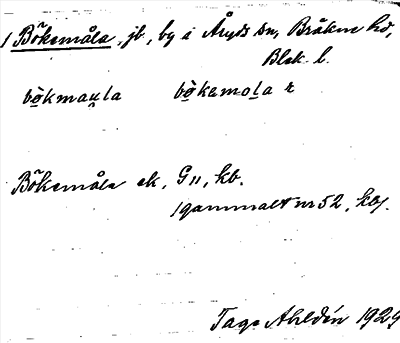 1 Bökemåla, jb, by i Åryds sn, Bräkne hd,
Blek. l.
bökmau̯la bökemola r
Bökemåla ek. G11, kb.
gammalt nr 52, kb.
Tage Ahldén 1929